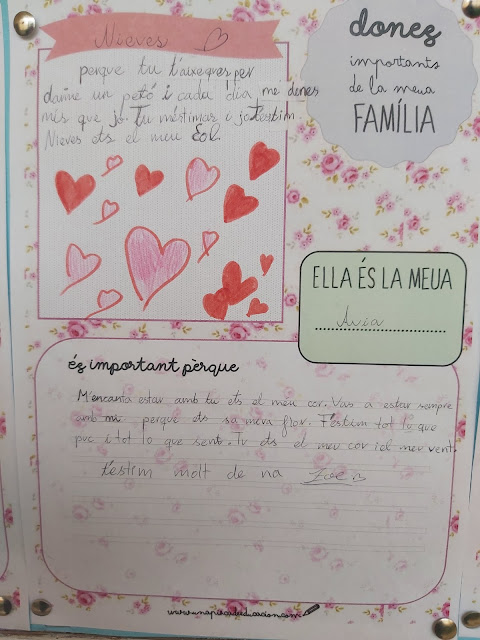 Nieves
perque tu t'aixeques per
darme un petó i cada dia me dones
més que jo. Tu m'estimas i jo t'estim.
Nieves ets el meu Sol.
dones
importants
de la meua
FAMÍLIA
ELLA ÉS LA MEUA
Avia
és important pèrque
M'encanta estar amb tu ets el meu cor. Vas a estar sempre
amb mi perque ets sa meva flor. T'estim tot lo que
puc i tot lo que sent. tu ets el meu cor i el meu vent.
t'estim molt de na Zoe
www.unapizcadeeducacion.com